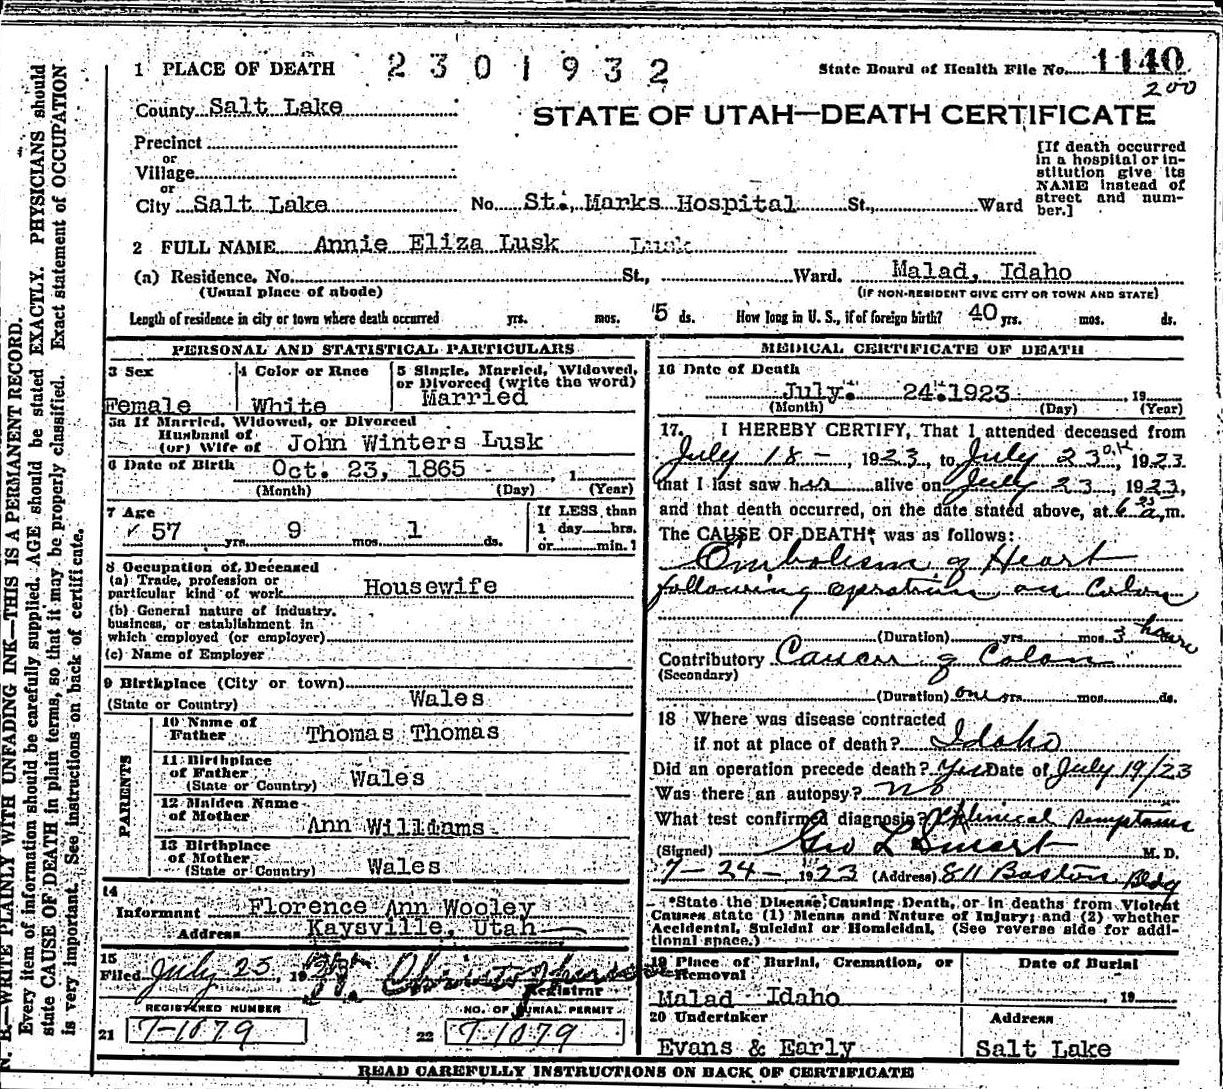 1 PLACE OF DEATH 2301932 State Board of Health File No. 1140
200
County Salt Lake
STATE OF UTAH—DEATH CERTIFICATE
Precinct
or
Village
or
City Salt Lake No. St. Marks Hospital St., Ward
[If death occurred
in a hospital or in-
stitution give its
NAME instead of
street and num-
ber.]
2 FULL NAME Annie Eliza Lusk Lusk
(a) Residence. No. St., Ward. Malad, Idaho
(Usual place of abode) (IF NON-RESIDENT GIVE CITY OR TOWN AND STATE)
Length of residence in city or town where death occurred yrs. mos. 5 ds. How long in U. S., if of foreign birth? 40 yrs. mos. ds.
PERSONAL AND STATISTICAL PARTICULARS
3 Sex
Female
4 Color or Race
White
5 Single, Married, Widowed,
or Divorced (write the word)
Married
5a If Married, Widowed, or Divorced
Husband of
(or) Wife of John Winters Lusk
6 Date of Birth Oct. 23, 1865 , 1
(Month) (Day) (Year)
7 Age
57 yrs. 9 mos. 1 ds.
If LESS than
1 day hrs.
or min.?
8 Occupation of Deceased
(a) Trade, profession or
particular kind of work Housewife
(b) General nature of industry,
business, or establishment in
which employed (or employer)
(c) Name of Employer
9 Birthplace (City or town)
(State or Country) Wales
PARENTS
10 Name of
Father Thomas Thomas
11 Birthplace
of Father
(State or Country) Wales
12 Maiden Name
of Mother Ann Williams
13 Birthplace
of Mother
(State or Country) Wales
14
Informant Florence Ann Wooley
Address Kaysville, Utah
15
Filed July 25, 19 Christopherson
Registrar
REGISTERED NUMBER
21 7-1079
NO. OF BURIAL PERMIT
22 7-1079
MEDICAL CERTIFICATE OF DEATH
16 Date of Death
July. 24. 1923 , 19
(Month) (Day) (Year)
17. I HEREBY CERTIFY, That I attended deceased from
July 18 - , 1923, to July 23, 1923
that I last saw her alive on July 23, 1923,
and that death occurred, on the date stated above, at 6 a.m.
The CAUSE OF DEATH* was as follows:
Embolism of Heart
following operation on Colon
(Duration) yrs. mos. 3 hours
Contributory Cancer of Colon
(Secondary)
(Duration) one yrs. mos. ds.
18 Where was disease contracted
if not at place of death? Idaho
Did an operation precede death? Yes Date of July 19/23
Was there an autopsy? no
What test confirmed diagnosis? Clinical Symptoms
(Signed) Geo L Smart M. D.
7-24- 1923 (Address) 811 Boston Bldg
*State the Disease Causing Death, or in deaths from Violent
Causes state (1) Means and Nature of Injury; and (2) whether
Accidental, Suicidal or Homicidal. (See reverse side for addi-
tional space.)
19 Place of Burial, Cremation, or
Removal
Malad Idaho
Date of Burial
, 19
20 Undertaker
Evans & Early
Address
Salt Lake
READ CAREFULLY INSTRUCTIONS ON BACK OF CERTIFICATE
N. B.—WRITE PLAINLY WITH UNFADING INK—THIS IS A PERMANENT RECORD.
Every item of information should be carefully supplied. AGE should be stated EXACTLY. PHYSICIANS should
state CAUSE OF DEATH in plain terms, so that it may be properly classified. Exact statement of OCCUPATION
is very important. See instructions on back of certificate.